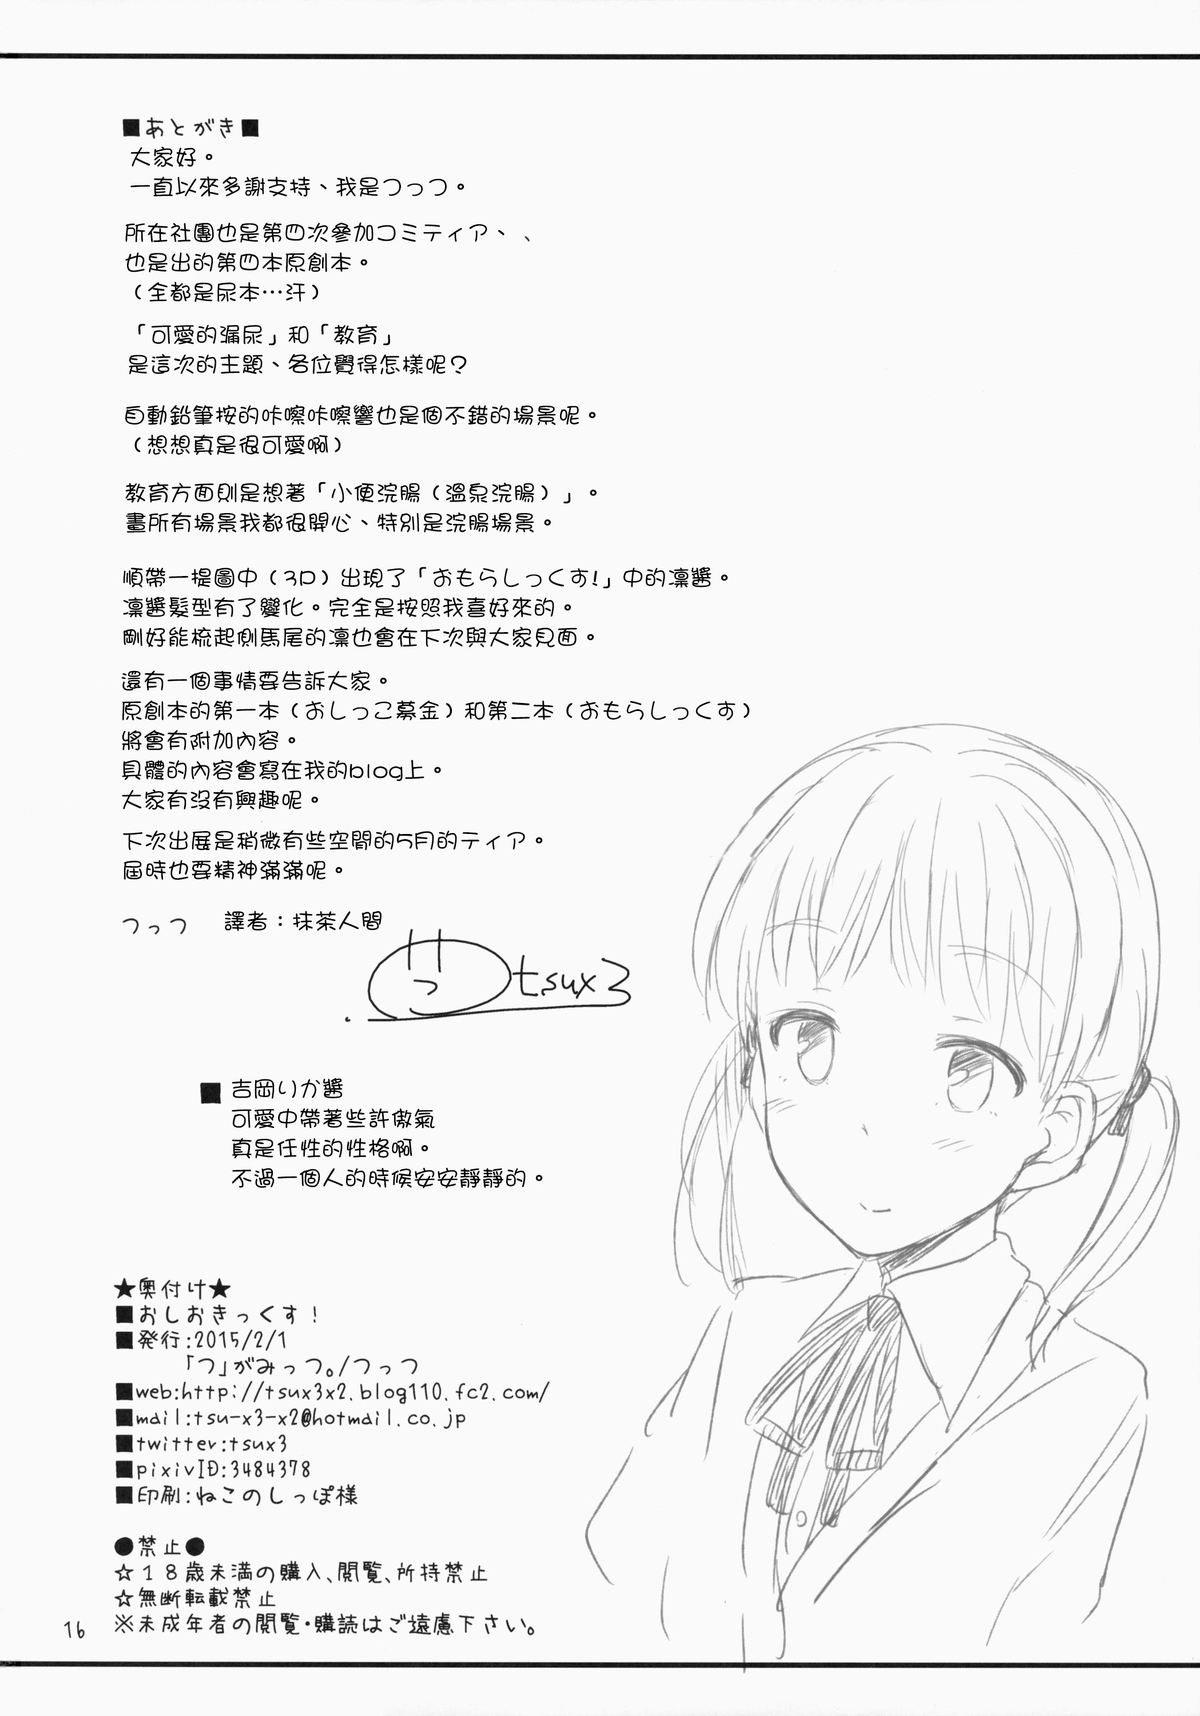 ■あとがき■
大家好。
一直以來多謝支持、我是つっつ。
所在社團也是第四次參加コミティア、、
也是出的第四本原創本。
（全都是尿本…汗）
「可愛的漏尿」和「教育」
是這次的主題、各位覺得怎樣呢？
自動鉛筆按的咔嚓咔嚓響也是個不錯的場景呢。
（想想真是很可愛啊）
教育方面則是想著「小便浣腸（溫泉浣腸）」。
畫所有場景我都很開心、特別是浣腸場景。
順帶一提圖中（3P）出現了「おもらしっくす!」中的凛醬。
凛醬髮型有了變化。完全是按照我喜好來的。
剛好能梳起側馬尾的凛也會在下次與大家見面。
還有一個事情要告訴大家。
原創本的第一本（おしっこ募金）和第二本（おもらしっくす）
將會有附加內容。
具體的內容會寫在我的blog上。
大家有沒有興趣呢。
下次出展是稍微有些空閒的5月的ティア。
屆時也要精神滿滿呢。
つっつ　譯者：抹茶人間
tsux3
■吉岡りか醬
可愛中帶著些許傲氣
真是任性的性格啊。
不過一個人的時候安安靜靜的。
★奥付け★
■おしおきっくす！
■発行:2015/2/1
「つ」がみっつ。/つっつ
■web:http://tsux3x2.blog110.fc2.com/
■mail:tsu-x3-x2@hotmail.co.jp
■twitter:tsux3
■pixivID:3484378
■印刷:ねこのしっぽ様
●禁止●
☆18歳未満の購入、閲覧、所持禁止
☆無断転載禁止
※未成年者の閲覧・購読はご遠慮下さい。
16